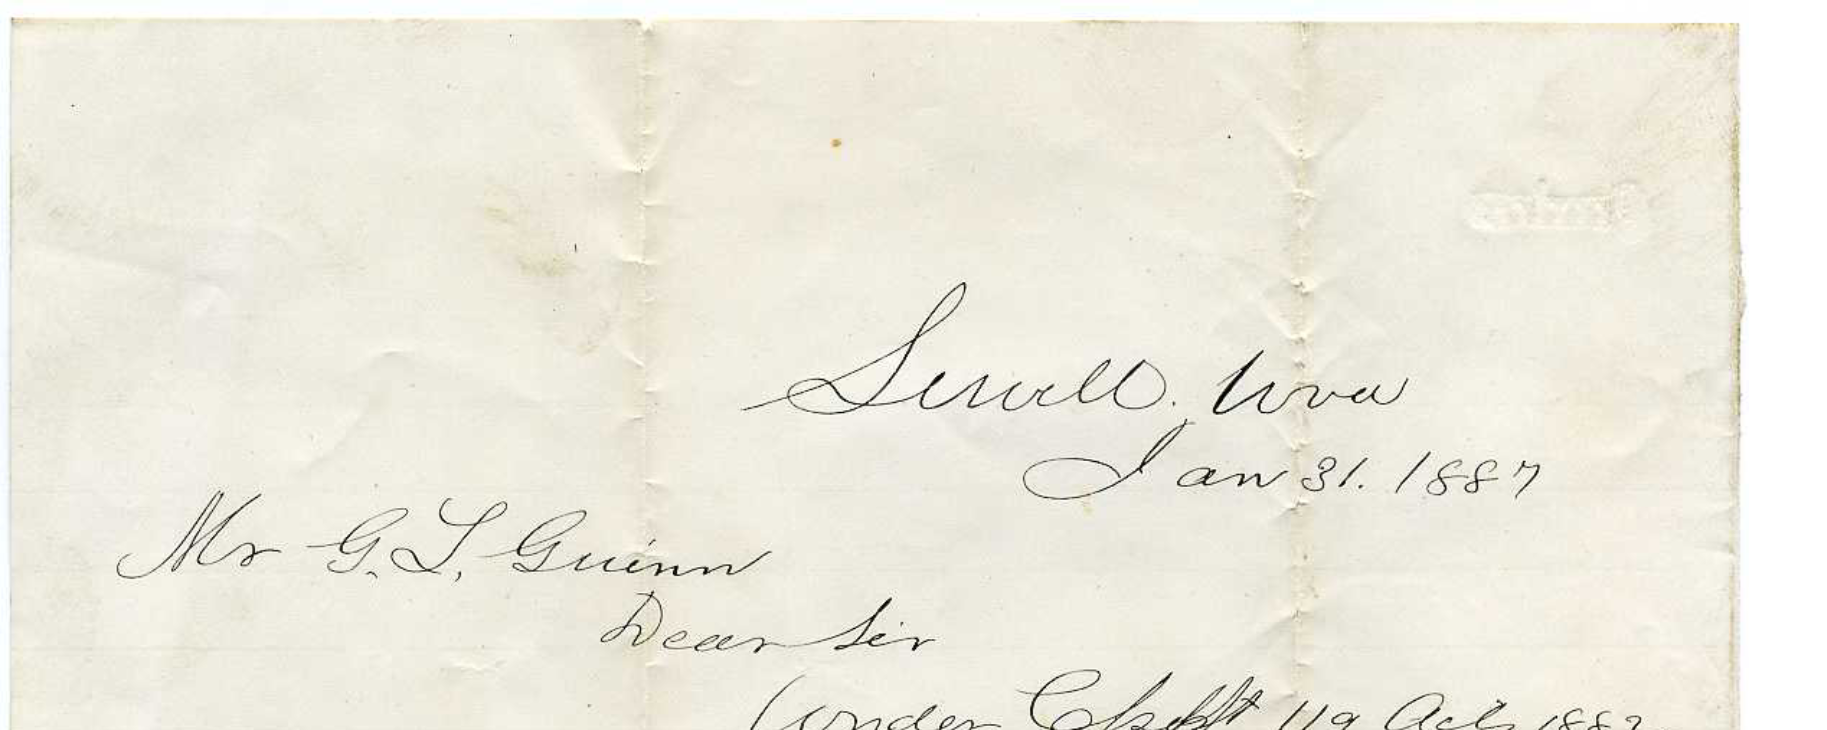 Sewell. Wva
Jan 31. 1887
Mr G. L. Guinn
Dear Sir
Under Chapt 119 Acts 1882